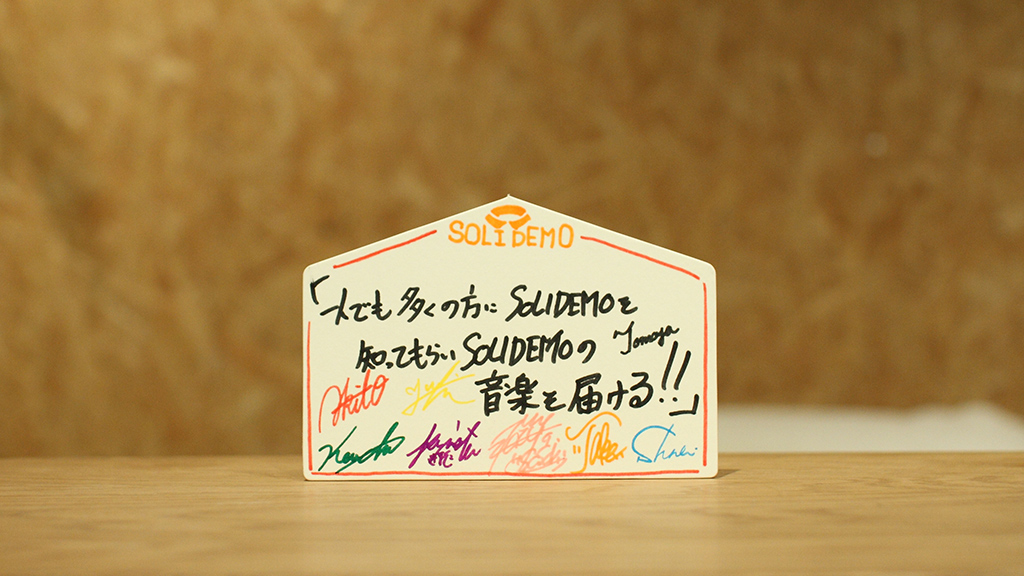 SOLIDEMO
「一人でも多くの方に SOLIDEMOを
知ってもらい SOLIDEMOの
音楽を届ける!!」
Tomoya
Akito
Shuei